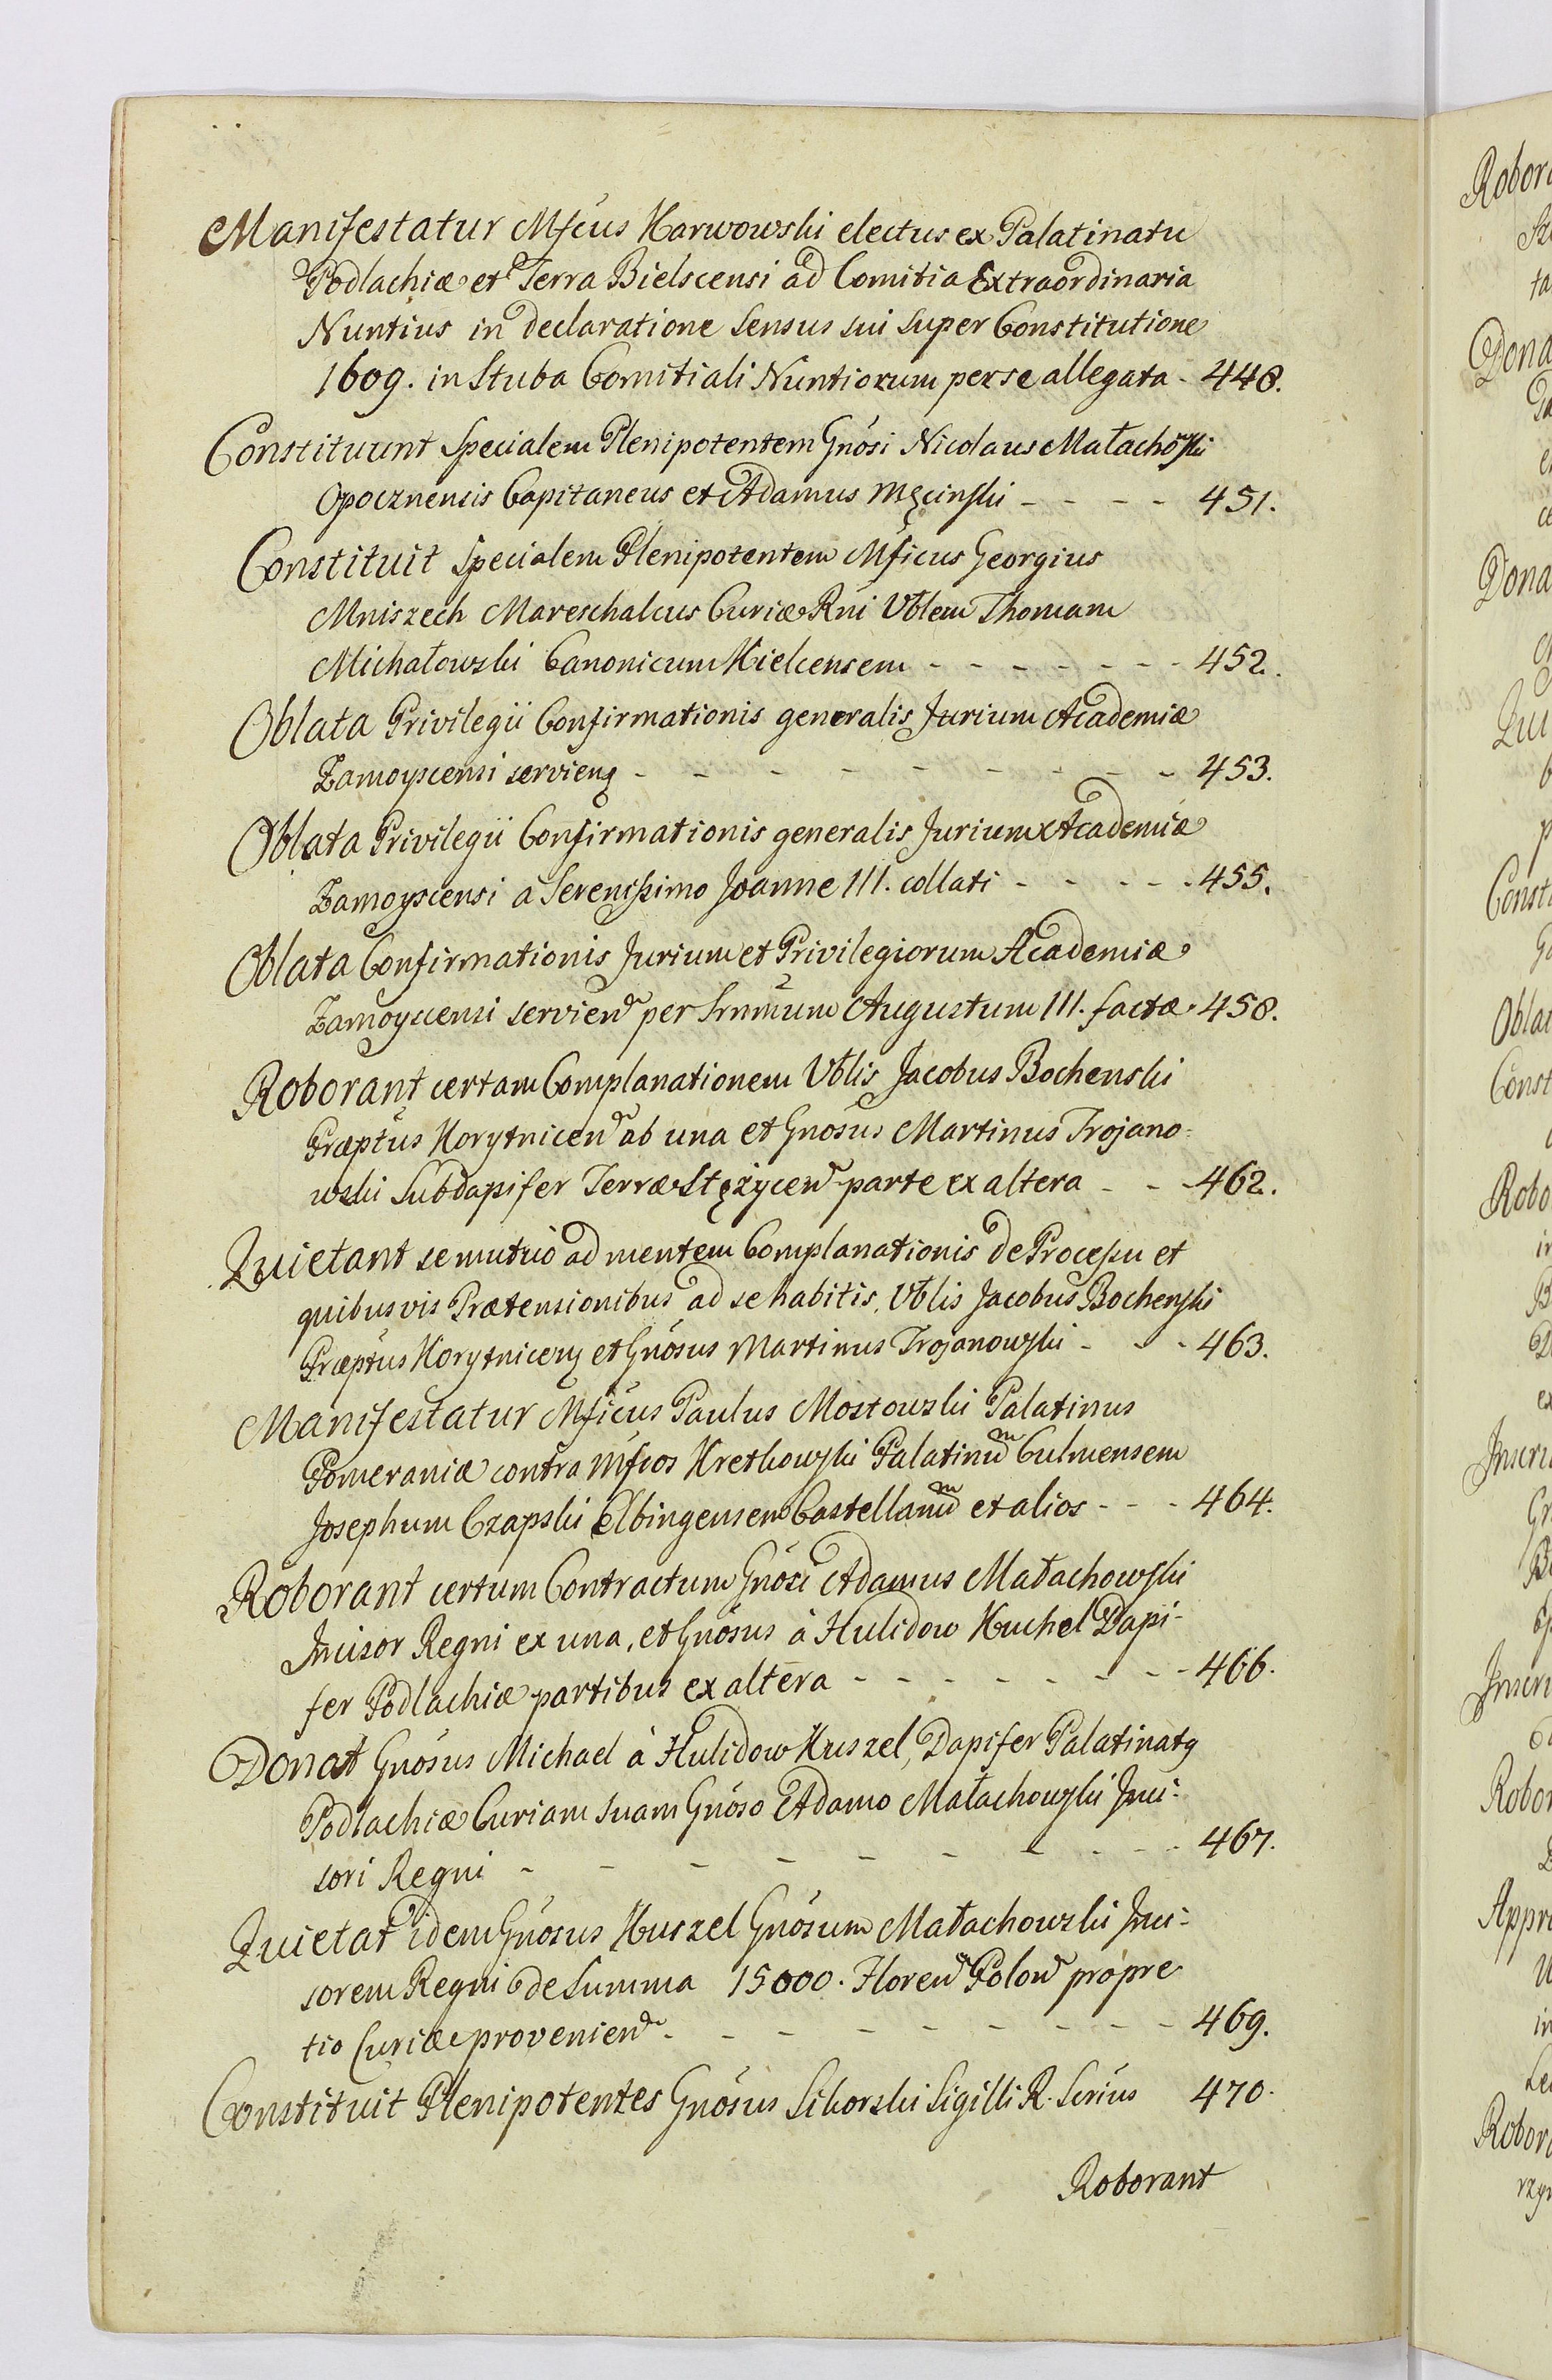 Manifestatur Mfcus Karwowski electus ex Palatinatu
Podlachiæ et Terra Bielscensi ad Comitia Extraordinaria
Nuntius in declaratione Sensus sui super Constitutione
1609. in Stuba Comitiali Nuntiorum per se allegata - 448.
Constituunt Specialem Plenipotentem Gnosi Nicolaus Małachoski
Opocznensis Capitaneus et Adamus Męcinski - - - - 451.
Constituit Specialem Plenipotentem Mficus Georgius
Mniszech Mareschalcus Curiæ Rni Vblem Thomam
Michałowski Canonicum Kielcensem - - - - - - - 452.
Oblata Privilegii Confirmationis generalis Jurium Academiæ
Zamoyscensi servien - - - - - - - - - 453.
Oblata Privilegii Confirmationis generalis Jurium Academiæ
Zamoyscensi à Serenissimo Joanne III. collati - - - - - 455.
Oblata Confirmationis Jurium et Privilegiorum Academiæ
Zamoyscensi servien per Srnmum Augustum III. factæ - 458.
Roborant certam Complanationem Vblis Jacobus Bochenski
Præptus Korytnicen ab una et Gnosus Martinus Trojano-
wski Subdapifer Terræ Stężycen parte ex altera - - - 462.
Quietant se mutuo ad mentem Complanationis de Processu et
quibusvis Prætensionibus ad se habitis, Vblis Jacobus Bochenski
Præptus Korytnicen et Gnosus Martinus Trojanowski - - - 463.
Manifestatur Mficus Paulus Mostowski Palatinus
Pomeraniæ contra Mfcos Kretkowski Palatinum Culmensem
Josephum Czapski Elbingensem Castellanum et alios - - - 464.
Roborant certum Contractum Gnosi Adamus Małachowski
Incisor Regni ex una, et Gnosus à Hulidow Kuchel Dapi-
fer Podlachiæ partibus ex altera - - - - - - - - 466.
Donat Gnosus Michael à Hulidow Kuszel, Dapifer Palatinatq
Podlachiæ Curiam suam Gnoso Adamo Małachowski Inci-
sori Regni - - - - - - - - - 467.
Quietat idem Gnosus Kuszel Gnosum Małachowski Inci-
sorem Regni de Summa 15000. Floren Polon pro pre
tio Curiæ provenien - - - - - - - - 469.
Constituit Plenipotentes Gnosus Sikorski Sigilli R. Scrius 470.
Roborant